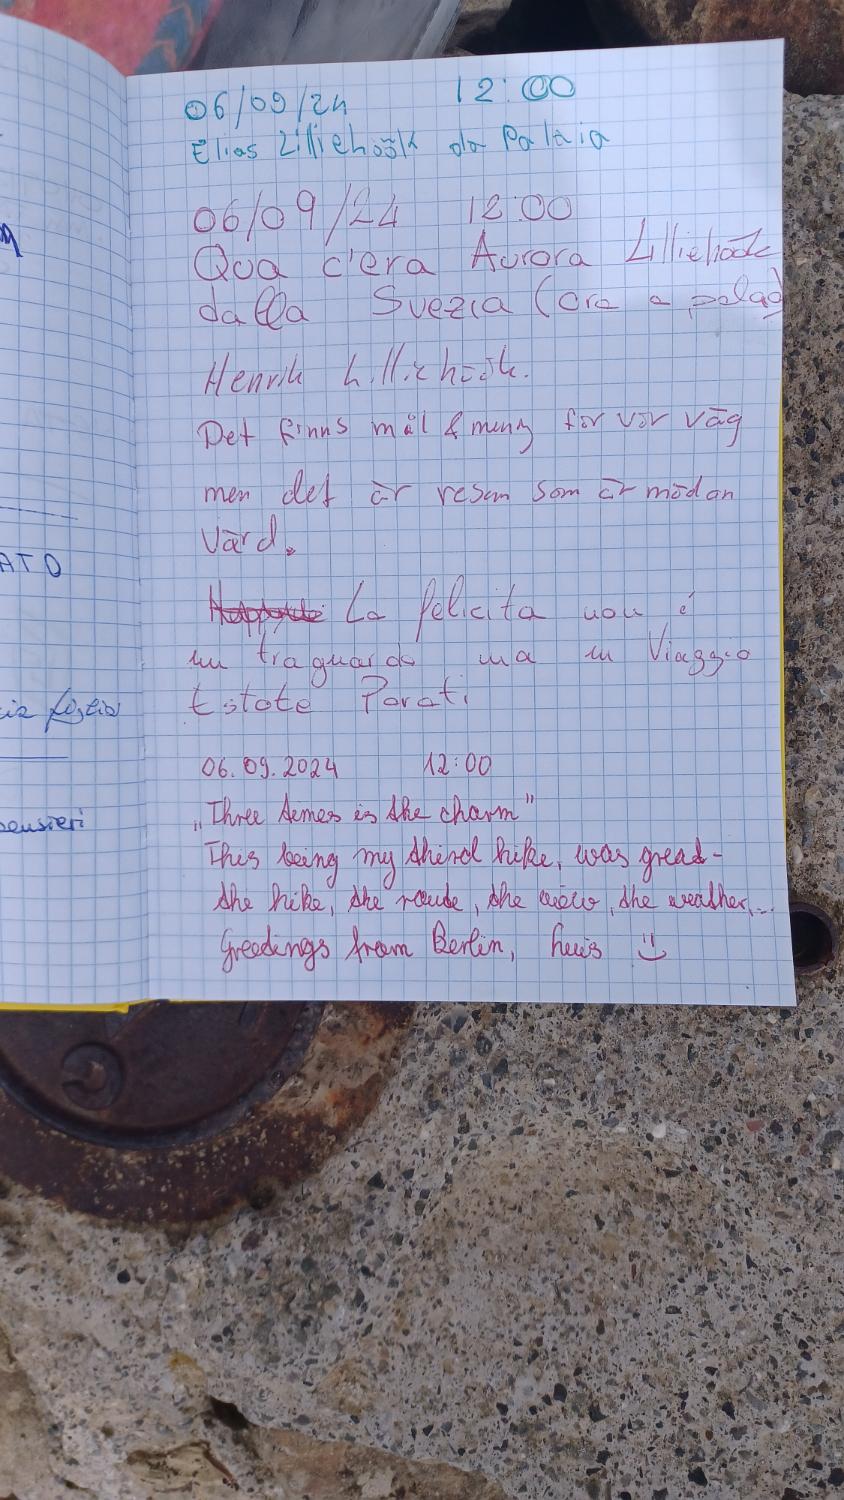 06/09/24 12:00
Elias Lilliehöök da Palaia
06/09/24 12:00
Qua c'era Aurora Lilliehöök
dalla Svezia (ora a
Henrik Lilliehöök.
Det finns mål & mening för vår väg
men det är resan som är mödan
värd.
La felicita non é
un traguardo ma un Viaggio
Estote Parati
06.09.2024 12:00
„Three times is the charm"
This being my third hike, was great -
the hike, the route, the view, the weather,...
Greedings from Berlin,
ATO
pensieri